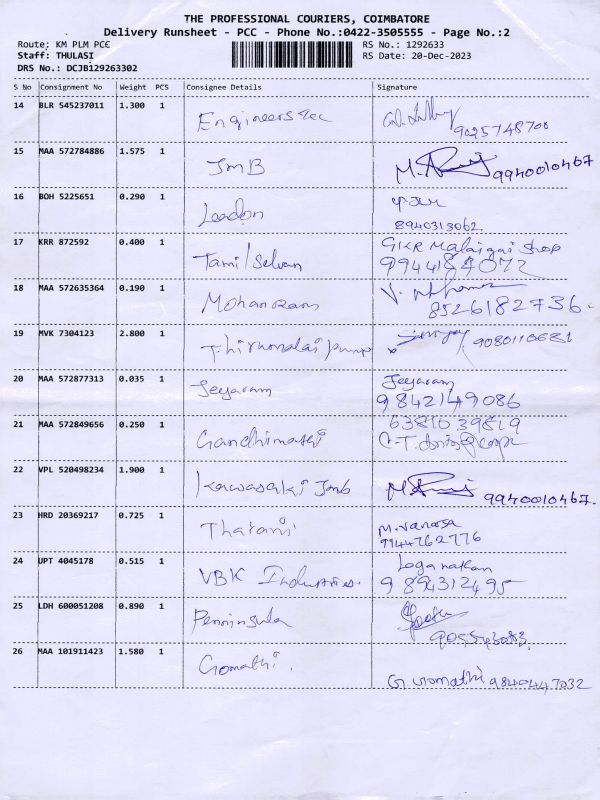 THE PROFESSIONAL COURIERS, COIMBATORE
Delivery Runsheet - PCC - Phone No.:0422-3505555 - Page No.:2
Route: KM PLM PCC RS No.: 1292633
Staff: THULASI RS Date: 20-Dec-2023
DRS No.: DCJB129263302
S No Consignment No Weight PCS Consignee Details Signature
14 BLR 545237011 1.300 1 Engineers Tec
9025748700
15 MAA 572784886 1.575 1 JMB 9940010467
16 BOH 5225651 0.290 1 Leadon
8940313062
17 KRR 872592 0.400 1 Tamil Selvan GKR Maligai Shop
9944184072
18 MAA 572635364 0.190 1 Mohanram
8526182736.
19 MVK 7304123 2.800 1 Thirumalai pump 9080110681
20 MAA 572877313 0.035 1 Jeyaram Jeyaram
9842149086
21 MAA 572849656 0.250 1 Gandhimathi 6381039819
22 VPL 520498234 1.900 1 Kawasaki Jmb 9940010467.
23 HRD 20369217 0.725 1 Tharani M. Vanaja
9944762776
24 UPT 4045178 0.515 1 VBK Industries. Loganathan
9894312495
25 LDH 600051208 0.890 1 Penninsula
9055543083.
26 MAA 101911423 1.580 1 Gomathi.
G. Gomathi 9840447032